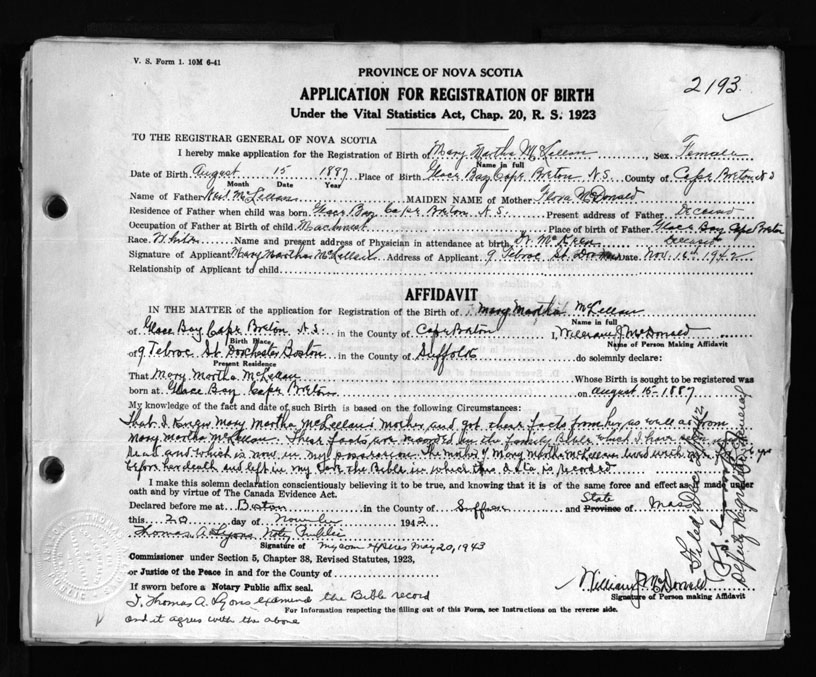 V. S. Form 1. 10M 6-41
PROVINCE OF NOVA SCOTIA
2193
APPLICATION FOR REGISTRATION OF BIRTH
Under the Vital Statistics Act, Chap. 20, R. S. 1923
TO THE REGISTRAR GENERAL OF NOVA SCOTIA
I hereby make application for the Registration of Birth of Mary Martha McLellan, Sex Female
Name in full
Date of Birth August 15 1887 Place of Birth Glace Bay Cape Breton N.S. County of Cape Breton N.S
Month Date Year
Name of Father Neil McLellan MAIDEN NAME of Mother Flora McDonald
Residence of Father when child was born Glace Bay Cape Breton N.S. Present address of Father
Occupation of Father at Birth of child Machinest Place of birth of Father Glace Bay Cape Breton
Race White Name and present address of Physician in attendance at birth
Signature of Applicant Mary Martha McLellan Address of Applicant 9 St. Date Nov. 16th 1942
Relationship of Applicant to child
AFFIDAVIT
IN THE MATTER of the application for Registration of the Birth of Mary Martha McLellan
Name in full
of Glace Bay Cape Breton N.S. in the County of Cape Breton I, William J McDonald
Birth Place Name of Person Making Affidavit
of 9 St Dorchester Boston in the County of Suffolk do solemnly declare:
Present Residence
That Mary Martha McLellan Whose Birth is sought to be registered was
born at Glace Bay Cape Breton on August 15-1887
My knowledge of the fact and date of such Birth is based on the following Circumstances:
That I knew Mary Martha McLellan's mother and got these facts from her as well as from
Mary Martha McLellan. These facts are recorded by the family Bible which I have seen and
read and which is now in my possession. The mother of Mary Martha McLellan lived with me yrs
before her death and left in my the Bible in which this data is recorded
I make this solemn declaration conscientiously believing it to be true, and knowing that it is of the same force and effect as if made under
oath and by virtue of The Canada Evidence Act.
State
Declared before me at Boston in the County of Suffolk and Province of Mass
this 20 day of November 1942
Thomas A Lyons Noty Public
Signature of my com expires May 20, 1943
Commissioner under Section 5, Chapter 38, Revised Statutes, 1923,
or Justice of the Peace in and for the County of
If sworn before a Notary Public affix seal.
William J McDonald
Signature of Person making Affidavit
I, Thomas A. Lyons examined the Bible record
For Information respecting the filling out of this Form, see Instructions on the reverse side.
and it agrees with the above
Filed Dec
Deputy Registrar General